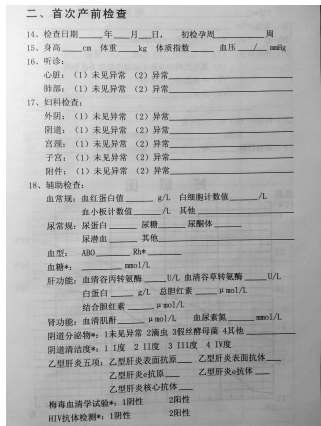 二、首次产前检查
14、检查日期____年__月__日， 初检孕周________周
15、身高____cm 体重____kg 体质指数____ 血压__/__mmHg
16、听诊：
心脏：（1）未见异常（2）异常____________
肺部：（1）未见异常（2）异常____________
17、妇科检查：
外阴：（1）未见异常（2）异常____________
阴道：（1）未见异常（2）异常____________
宫颈：（1）未见异常（2）异常____________
子宫：（1）未见异常（2）异常____________
附件：（1）未见异常（2）异常____________
18、辅助检查：
血常规：血红蛋白值______ g/L 白细胞计数值______/L
血小板计数值______/L 其他____________
尿常规：尿蛋白______ 尿糖______尿酮体______
尿潜血______ 其他____________
血型： ABO______ Rh*______
血糖*：________mmol/L
肝功能：血清谷丙转氨酶____U/L 血清谷草转氨酶____U/L
白蛋白____ g/L 总胆红素____μmol/L
结合胆红素____μmol/L
肾功能：血清肌酐____μmol/L 血尿素氮____mmol/L
阴道分泌物*：1未见异常 2滴虫 3假丝酵母菌 4其他______
阴道清洁度*：1 I度 2 II度 3 III度 4 IV度
乙型肝炎五项：乙型肝炎表面抗原____ 乙型肝炎表面抗体____
乙型肝炎e抗原____ 乙型肝炎e抗体____
乙型肝炎核心抗体____
梅毒血清学试验*：1阴性 2阳性
HIV抗体检测*：1阴性 2阳性